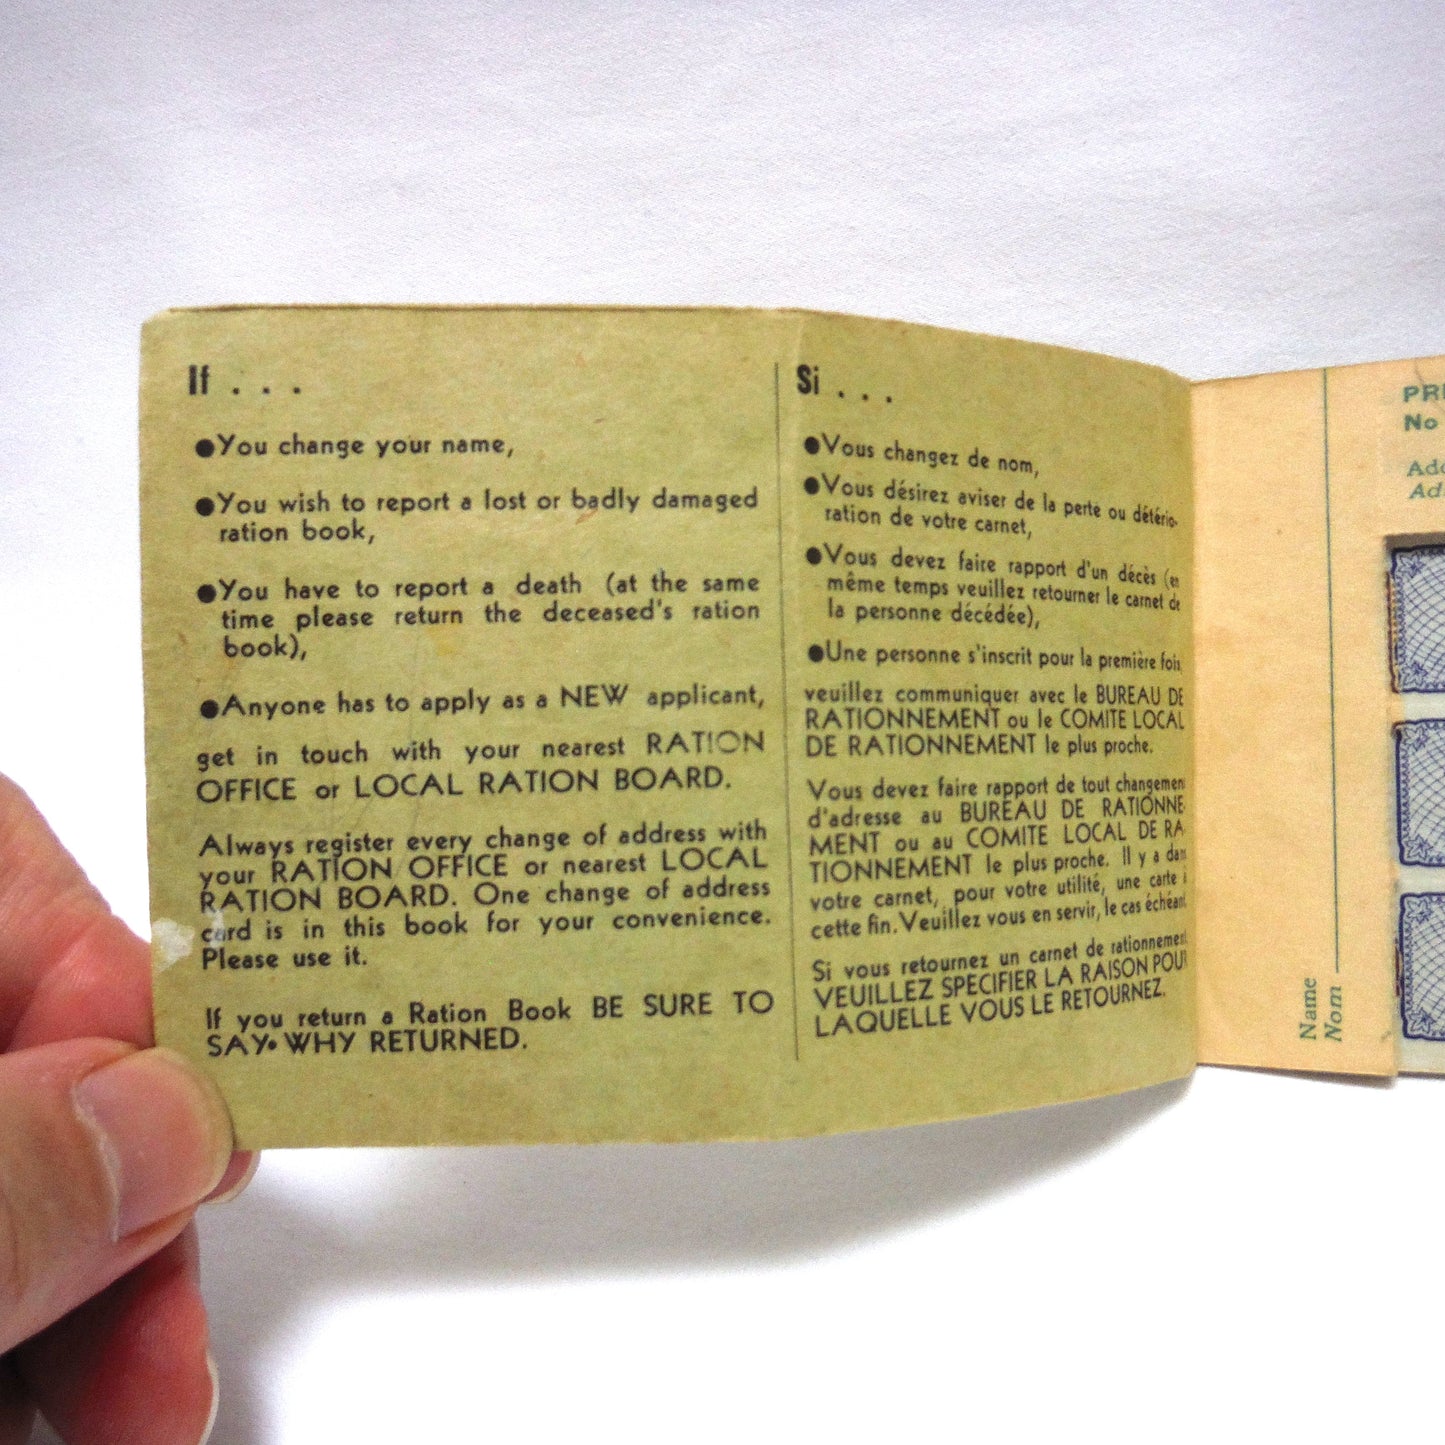 If . . .
●You change your name,
●You wish to report a lost or badly damaged
ration book,
●You have to report a death (at the same
time please return the deceased's ration
book),
●Anyone has to apply as a NEW applicant,
get in touch with your nearest RATION
OFFICE or LOCAL RATION BOARD.
Always register every change of address with
your RATION OFFICE or nearest LOCAL
RATION BOARD. One change of address
card is in this book for your convenience.
Please use it.
If you return a Ration Book BE SURE TO
SAY• WHY RETURNED.
Si . . .
●Vous changez de nom,
●Vous désirez aviser de la perte ou détério-
ration de votre carnet,
●Vous devez faire rapport d'un décès (en
même temps veuillez retourner le carnet de
la personne décédée),
●Une personne s'inscrit pour la première fois,
veuillez communiquer avec le BUREAU DE
RATIONNEMENT ou le COMITE LOCAL
DE RATIONNEMENT le plus proche.
Vous devez faire rapport de tout changement
d'adresse au BUREAU DE RATIONNE
MENT ou au COMITE LOCAL DE RA
TIONNEMENT le plus proche. Il y a dans
votre carnet, pour votre utilité, une carte
cette fin. Veuillez vous en servir, le cas échéant
Si vous retournez un carnet de rationnement
VEUILLEZ SPECIFIER LA RAISON POUR
LAQUELLE VOUS LE RETOURNEZ.
Name
Nom
No